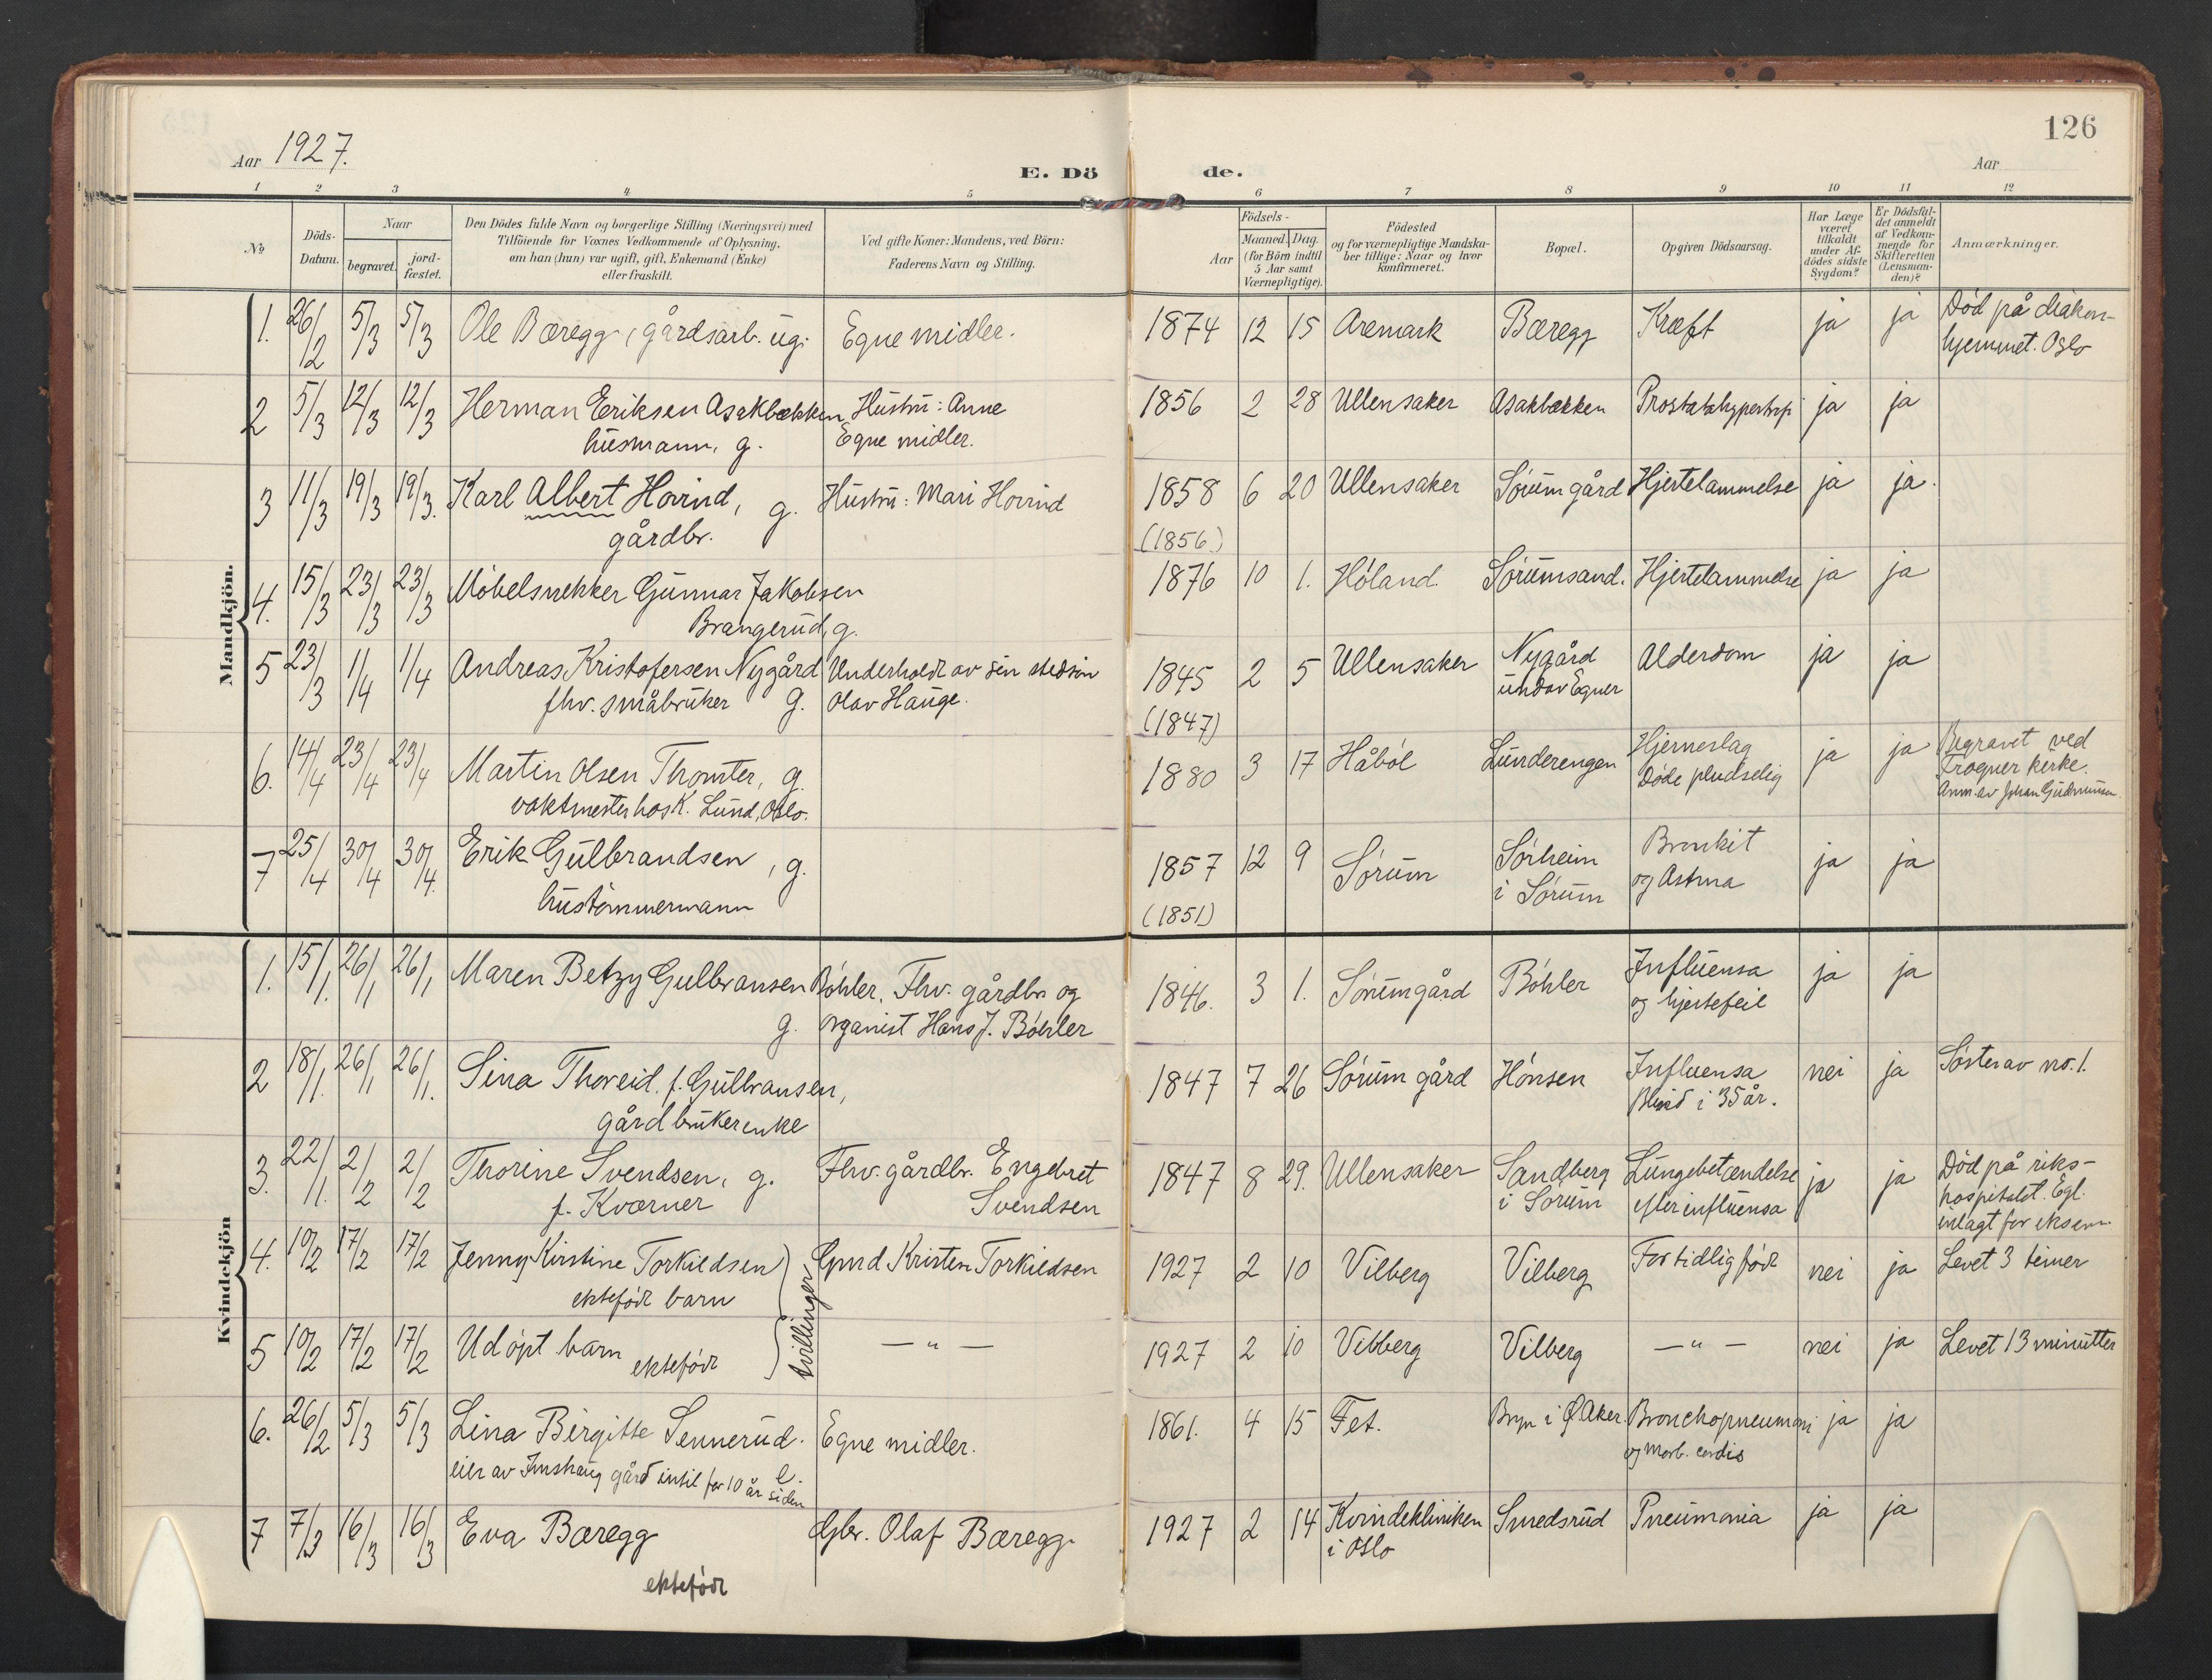 126
Aar 1927.
E. Dö de.
Aar
1 2 3 4 5 6 7 8 9 10 11 12
No
Döds-Datum.
Naar
begravet.
jord-fæstet.
Den Dödes fulde Navn og borgerlige Stilling (Næringsvei) med
Tilföiende for Voxnes Vedkommende af Oplysning,
om han (hun) var ugift, gift, Enkemand (Enke)
eller fraskilt.
Ved gifte Koner: Mandens, ved Börn:
Faderens Navn og Stilling.
Födsels-
Aar
Maaned. Dag.
(for Börn indtil
5 Aar samt
Værnepligtige).
Födested
og for værnepligtige Mandska-
ber tillige: Naar og hvor
konfirmeret.
Bopæl.
Opgiven Dödsaarsag.
Har Læge
været
tilkaldt
under Af-
dödes sidste
Sygdom?
Er Dödsfal-
det anmeldt
af Vedkom-
mende for
Skifteretten
(Lensman-
den)?
Anmærkninger.
Mandkjön.
1. 26/2 5/3 5/3 Ole Bæregg, gårdsarb. ug. Egne midler. 1874 12 15 Aremark Bæregg Kræft ja ja Död på diakon-
hjemmet. Oslo
2 5/3 12/3 12/3 Herman Eriksen Asakbækken Hustru: Anne 1856 2 28 Ullensaker Asakbækken Prostatahypertrofi ja ja
husmann, g. Egne midler.
3 11/3 19/3 19/3. Karl Albert Hovind, g. Hustru: Mari Hovind 1858 6 20 Ullensaker Sørum gård Hjertelammelse ja ja.
gårdbr. (1856)
4. 15/3 23/3 23/3 Møbelsnekker Gunnar Jakobsen 1876 10 1. Høland. Sørumsand. Hjertelammelse ja ja
Brangerud, g.
5 23/3 1/4 1/4 Andreas Kristofersen Nygård Underholdt av sin stedsøn 1845 2 5 Ullensaker Nygård Alderdom ja ja
fhv. småbruker g. Olav Hauge. (1847) undav Egner
6. 14/4 23/4 23/4 Martin Olsen Thomter, g. 1880 3 17 Håbøl Lunderengen Hjerneslag ja ja Begravet ved
vaktmester hos K. Lund, Oslo. Døde pludselig Frogner kirke.
Anm. av Johan Gudmunsen.
7 25/4 30/4 30/4. Erik Gulbrandsen, g. 1857 12 9 Sørum Sørheim Bronkit ja ja
hustømmermann (1851) i Sørum og Astma
Kvindekjön
1. 15/1. 26/1 26/1 Maren Betzy Gulbransen Bøhler. Fhv. gårdbr. og 1846. 3 1. Sørumgård Bøhler Influensa ja ja
g. organist Hans J. Bøhler og hjertefeil
2 18/1. 26/1 26/1. Sina Thoreid. f. Gulbransen, 1847 7 26 Sørum gård Hønsen Influensa nei ja Søster av no. 1.
gårdbrukerenke Blind i 35 år.
3. 22/1. 2/2 2/2 Thorine Svendsen, g. Fhv. gårdbr. Engebret 1847 8 29. Ullensaker Sandberg Lungebetændelse ja ja Död på riks-
f. Kværner Svendsen i Sørum efter influensa hospitalet. Egl.
inlagt for eksem.
4. 10/2 17/2 17/2 Jenny Kirstine Torkildsen Gmd Kristen Torkildsen 1927 2 10 Vilberg Vilberg For tidlig født nei ja Levet 3 timer
ektefødt barn
tvillinger
5 10/2 17/2 17/2 Udøpt barn — " — 1927 2 10 Vilberg Vilberg — " — nei ja Levet 13 minutter
ektefødt
6. 26/2 5/3 5/3 Lina Birgitte Sennerud. Egne midler. 1861. 4 15 Fet. Bryn i Ø. Aker. Bronchopneumoni ja ja
eier av Imshaug gård intil for 10 år siden e. og Morb. cordis
7 7/3 16/3 16/3 Eva Bæregg Gbr. Olaf Bæregg. 1927 2 14 Kvindekliniken Smedsrud Pneumonia ja ja
ektefødt i Oslo